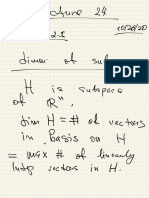 24
10/26/20
dimen of sub
H is subspace
of ℝⁿ,
dim H = # of vectors
in basis on H
= max # of linearly
indep vectors in H.